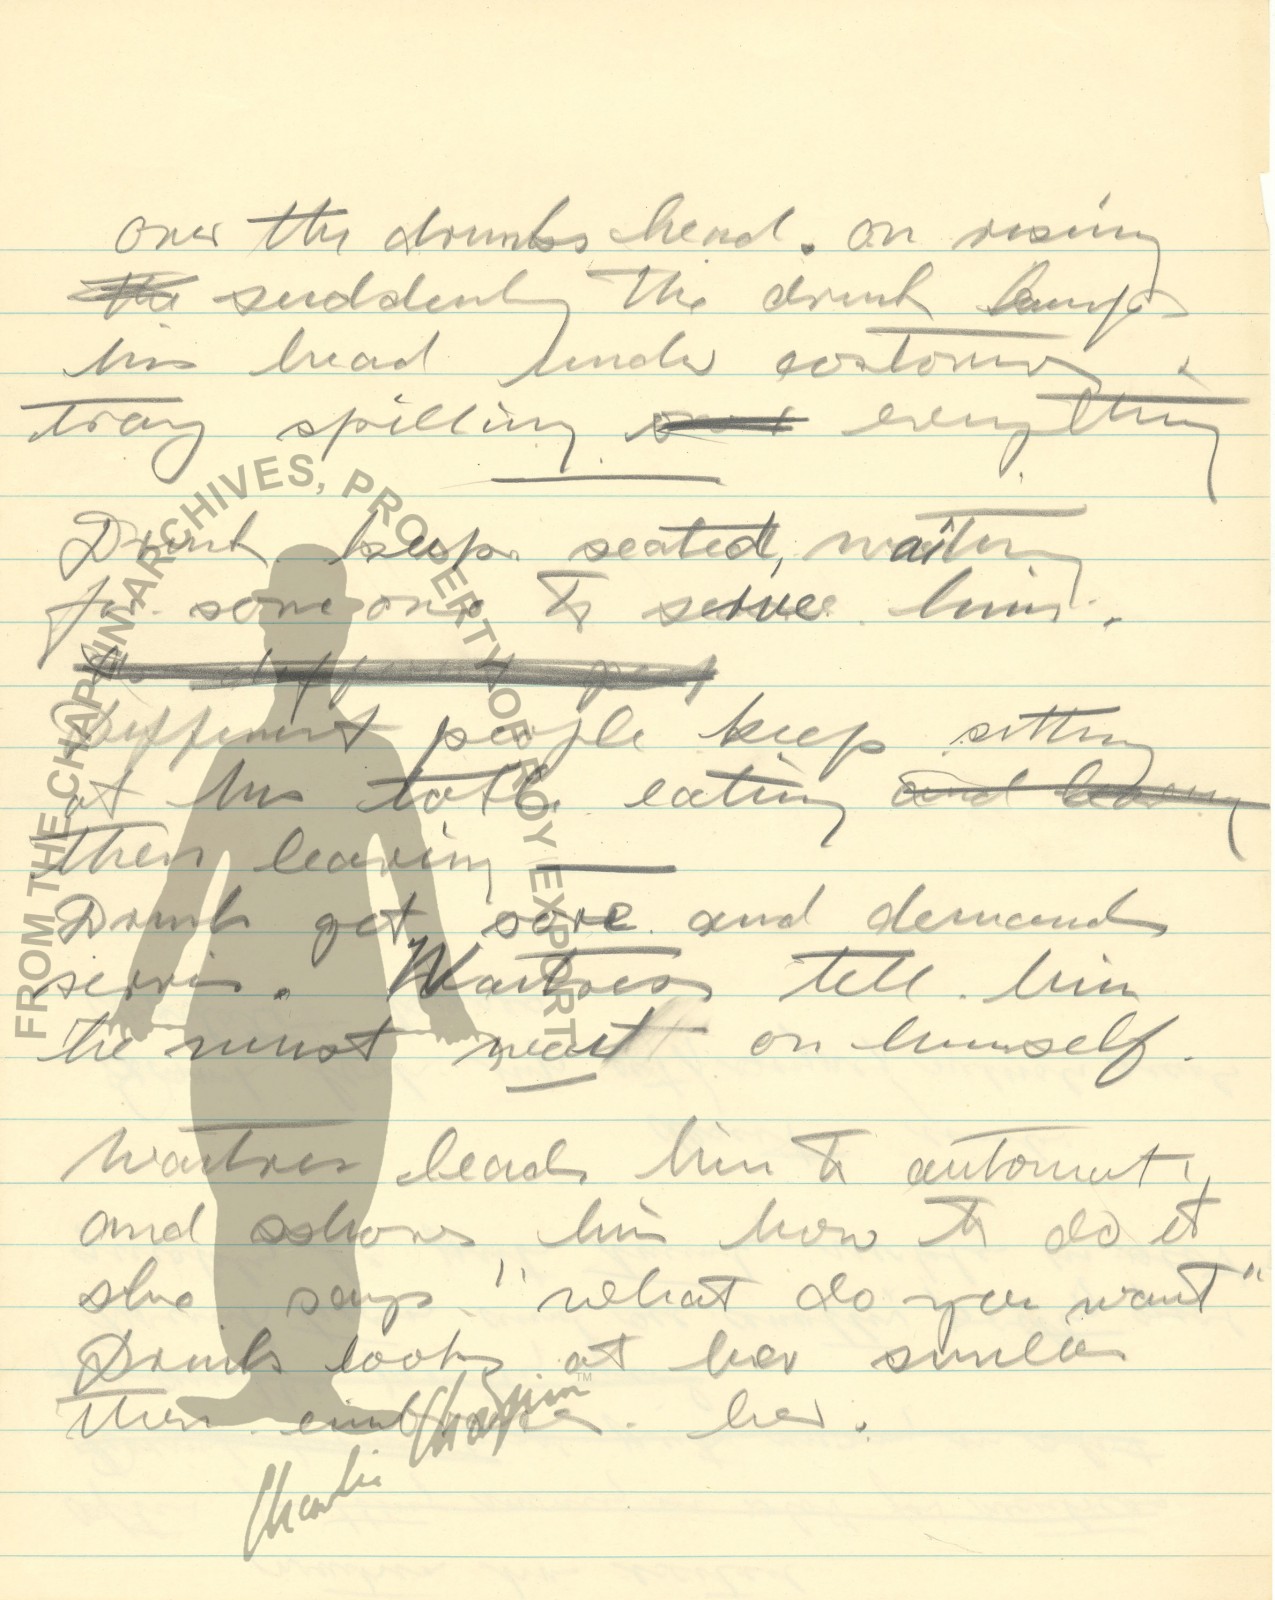 over the drunks head. on rising
the suddenly the drunk bumps
his head under costomers
tray spilling everything
Drunk keeps seated, waiting
for some one to serve him.
different
Different people keep sitting
at his table eating and leaving
then leaving
Drunk get sore and demand
servis. Waitress tell him
he must wait on himself.
Waitres leads him to automat,
and sshows him how to do it
she says "what do you want"
Drunk looks at her smiles
then embraces her.
FROM THE CHAPLIN ARCHIVES, PROPERTY OF ROY EXPORT
TM
Charlie Chaplin